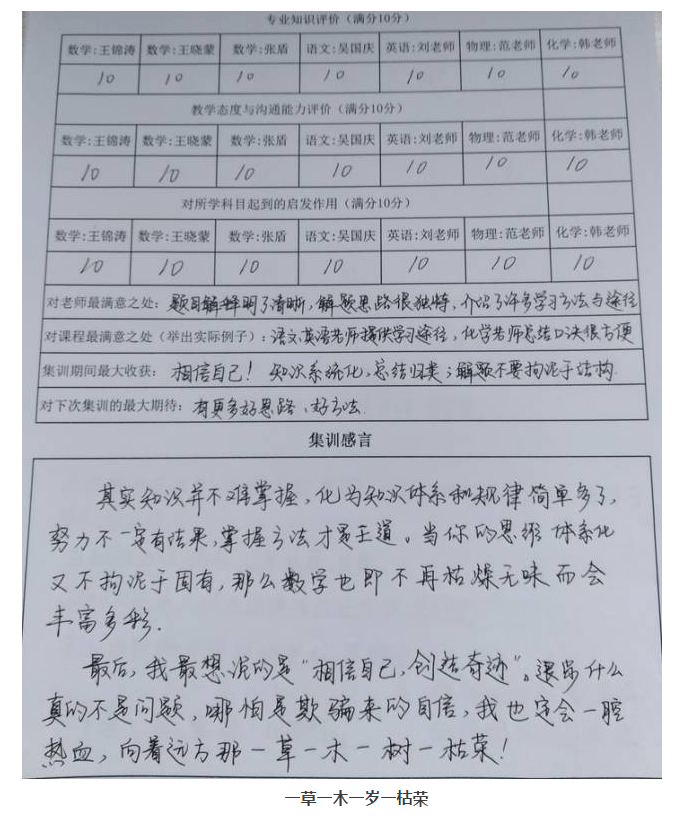 专业知识评价（满分10分）
数学:王锦涛 数学:王晓蒙 数学:张盾 语文:吴国庆 英语:刘老师 物理:范老师 化学:韩老师
10 10 10 10 10 10 10
教学态度与沟通能力评价（满分10分）
数学:王锦涛 数学:王晓蒙 数学:张盾 语文:吴国庆 英语:刘老师 物理:范老师 化学:韩老师
10 10 10 10 10 10 10
对所学科目起到的启发作用（满分10分）
数学:王锦涛 数学:王晓蒙 数学:张盾 语文:吴国庆 英语:刘老师 物理:范老师 化学:韩老师
10 10 10 10 10 10 10
对老师最满意之处：题目解释明了清晰，解题思路很独特，介绍了许多学习方法与途径
对课程最满意之处（举出实际例子）：语文,英语老师提供学习途径，化学老师总结口决很方便
集训期间最大收获：相信自己！知识系统化，总结归类；解题不要拘泥于结构.
对下次集训的最大期待：有更多好思路、好方法.
集训感言
其实知识并不难掌握，化为知识体系和规律简单多了，
努力不一定有结果，掌握方法才是王道。当你的思维体系化
又不拘泥于固有，那么数学也即不再枯燥无味而会
丰富多彩.
最后，我最想说的是“相信自己，创造奇迹”。退步什么
真的不是问题，哪怕是欺骗来的自信，我也定会一腔
热血，向着远方那一草一木一树一枯荣！
一草一木一岁一枯荣